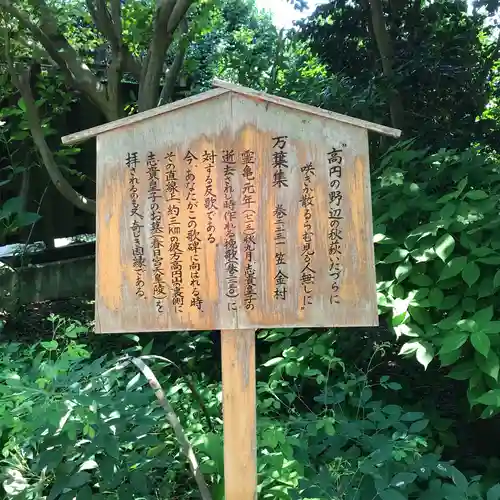 高円の野辺の秋萩いたづらに
咲きか散るらむ見る人無しに
万葉集 巻二―二三一 笠 金村
霊亀元年(七一五)秋九月志貴皇子の
逝去された時作れる挽歌(巻二―二三〇)に
対する反歌である。
今、あなたがこの歌碑に向はれる時、
その直線上、約三kmの彼方高円
志貴皇子のお墓(春日宮天皇陵)を
拝されるのも又、奇しき因縁である。